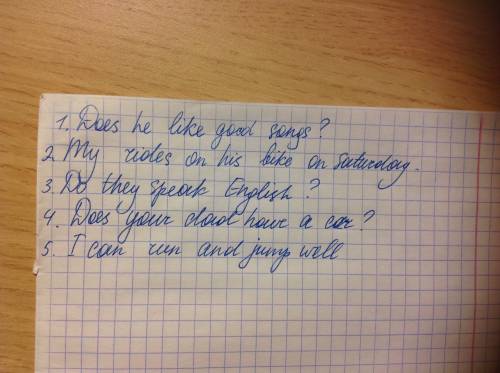 1. Does he like good songs?
2. My rides on his bike on Saturday.
3. Do they speak English?
4. Does your dad have a car?
5. I can run and jump well